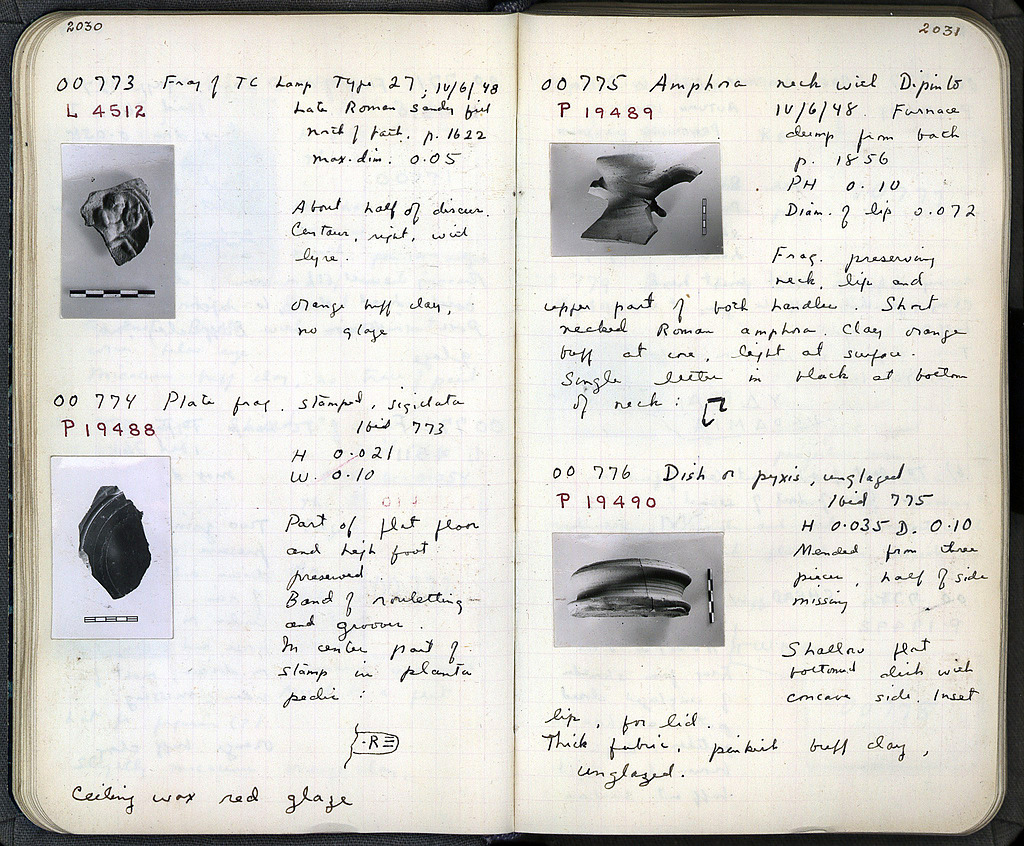 2030
OO 773 Frag of TC Lamp Type 27, IV/6/48
L 4512
Late Roman sandy fill
north of bath. p. 1622
max. dim. 0.05
About half of discus.
Centaur, right, with
lyre.
Orange buff clay,
no glaze
OO 774 Plate frag. stamped, sigillata
P 19488
Ibid 773
H 0.021
W. 0.10
Part of flat floor
and high foot
preserved.
Band of rouletting
and grooves.
In center part of
stamp in planta
pedis :
·R
Ceiling wax red glaze
2031
OO 775 Amphora neck with Dipinto
P 19489
IV/6/48. Furnace
dump from bath
p. 1856
PH 0.10
Diam. of lip 0.072
Frag. preserving
neck, lip and
upper part of both handles. Short
necked Roman amphora. Clay orange
buff at core, light at surface.
Single letter in black at bottom
of neck :
OO 776 Dish or pyxis, unglazed
P 19490
Ibid 775
H 0.035 D. 0.10
Mended from three
pieces, half of side
missing
Shallow flat
bottomed dish with
concave side. Inset
lip, for lid.
Thick fabric, pinkish buff clay,
unglazed.